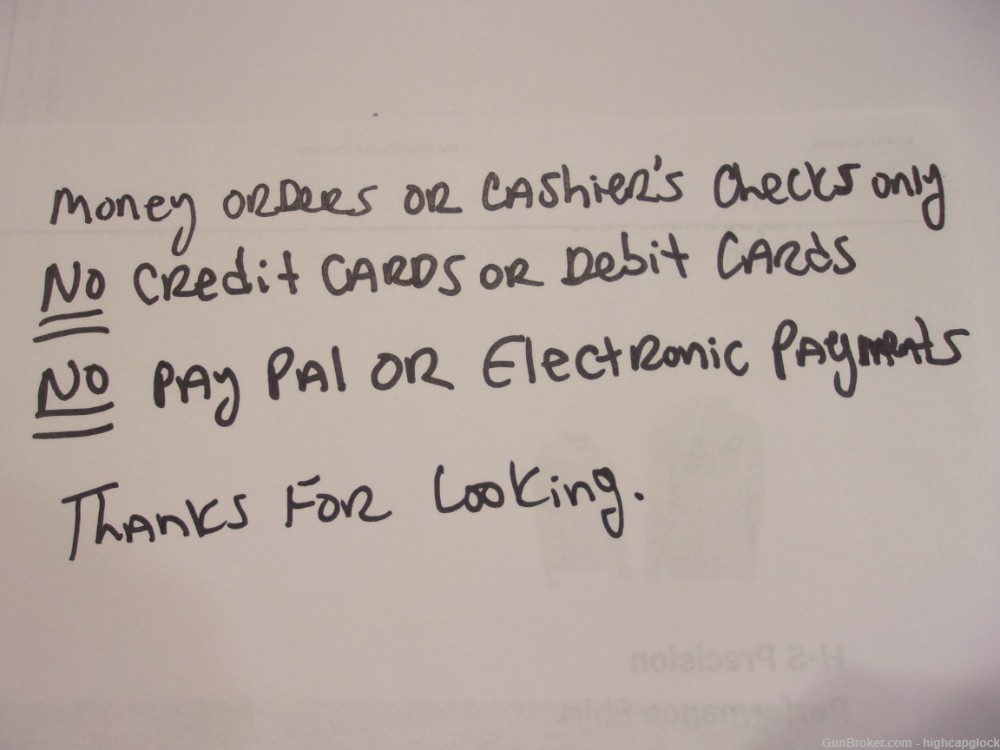 Money ORDERS OR CASHIER'S CHECKS only
NO CREDIT CARDS OR DEBIT CARDS
NO PAY PAL OR ELECTRONIC PAYMENTS
THANKS FOR LOOKING.
H-S Precision
Performance Shirt
GunBroker.com - highcapglock